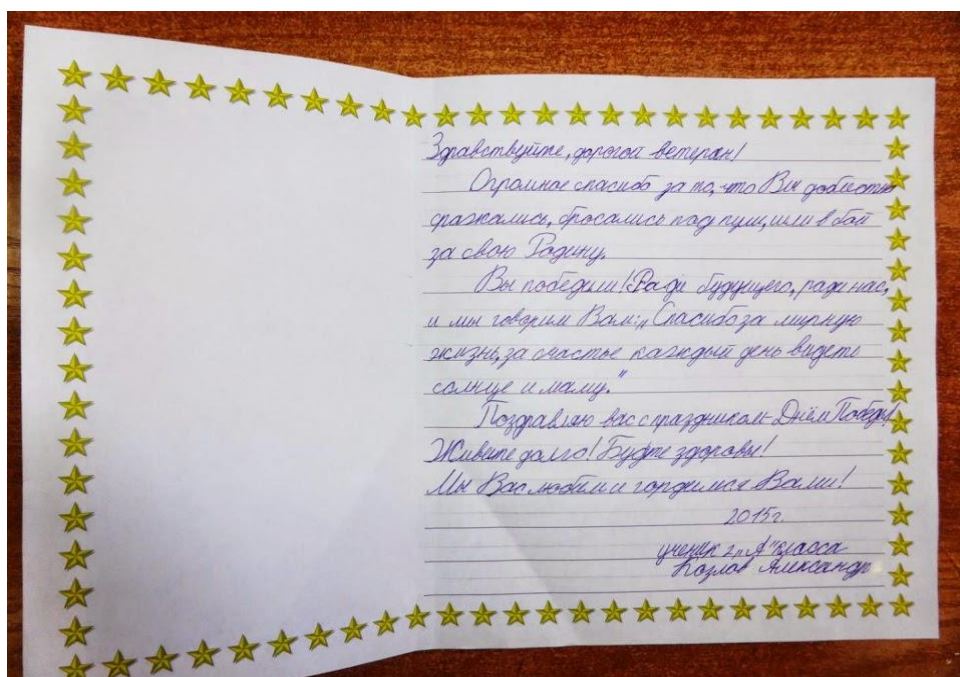 Здравствуйте, дорогой ветеран!
Огромное спасибо за то, что Вы доблестно
сражались, бросались под пули, шли в бой
за свою Родину.
Вы победили! Ради будущего, ради нас,
и мы говорим Вам: „Спасибо за мирную
жизнь, за счастье каждый день видеть
солнце и маму."
Поздравляю вас с праздником - Днём Победы!
Живите долго! Будьте здоровы!
Мы Вас любим и гордимся Вами!
2015г.
ученик 2 „А" класса
Козлов Александр